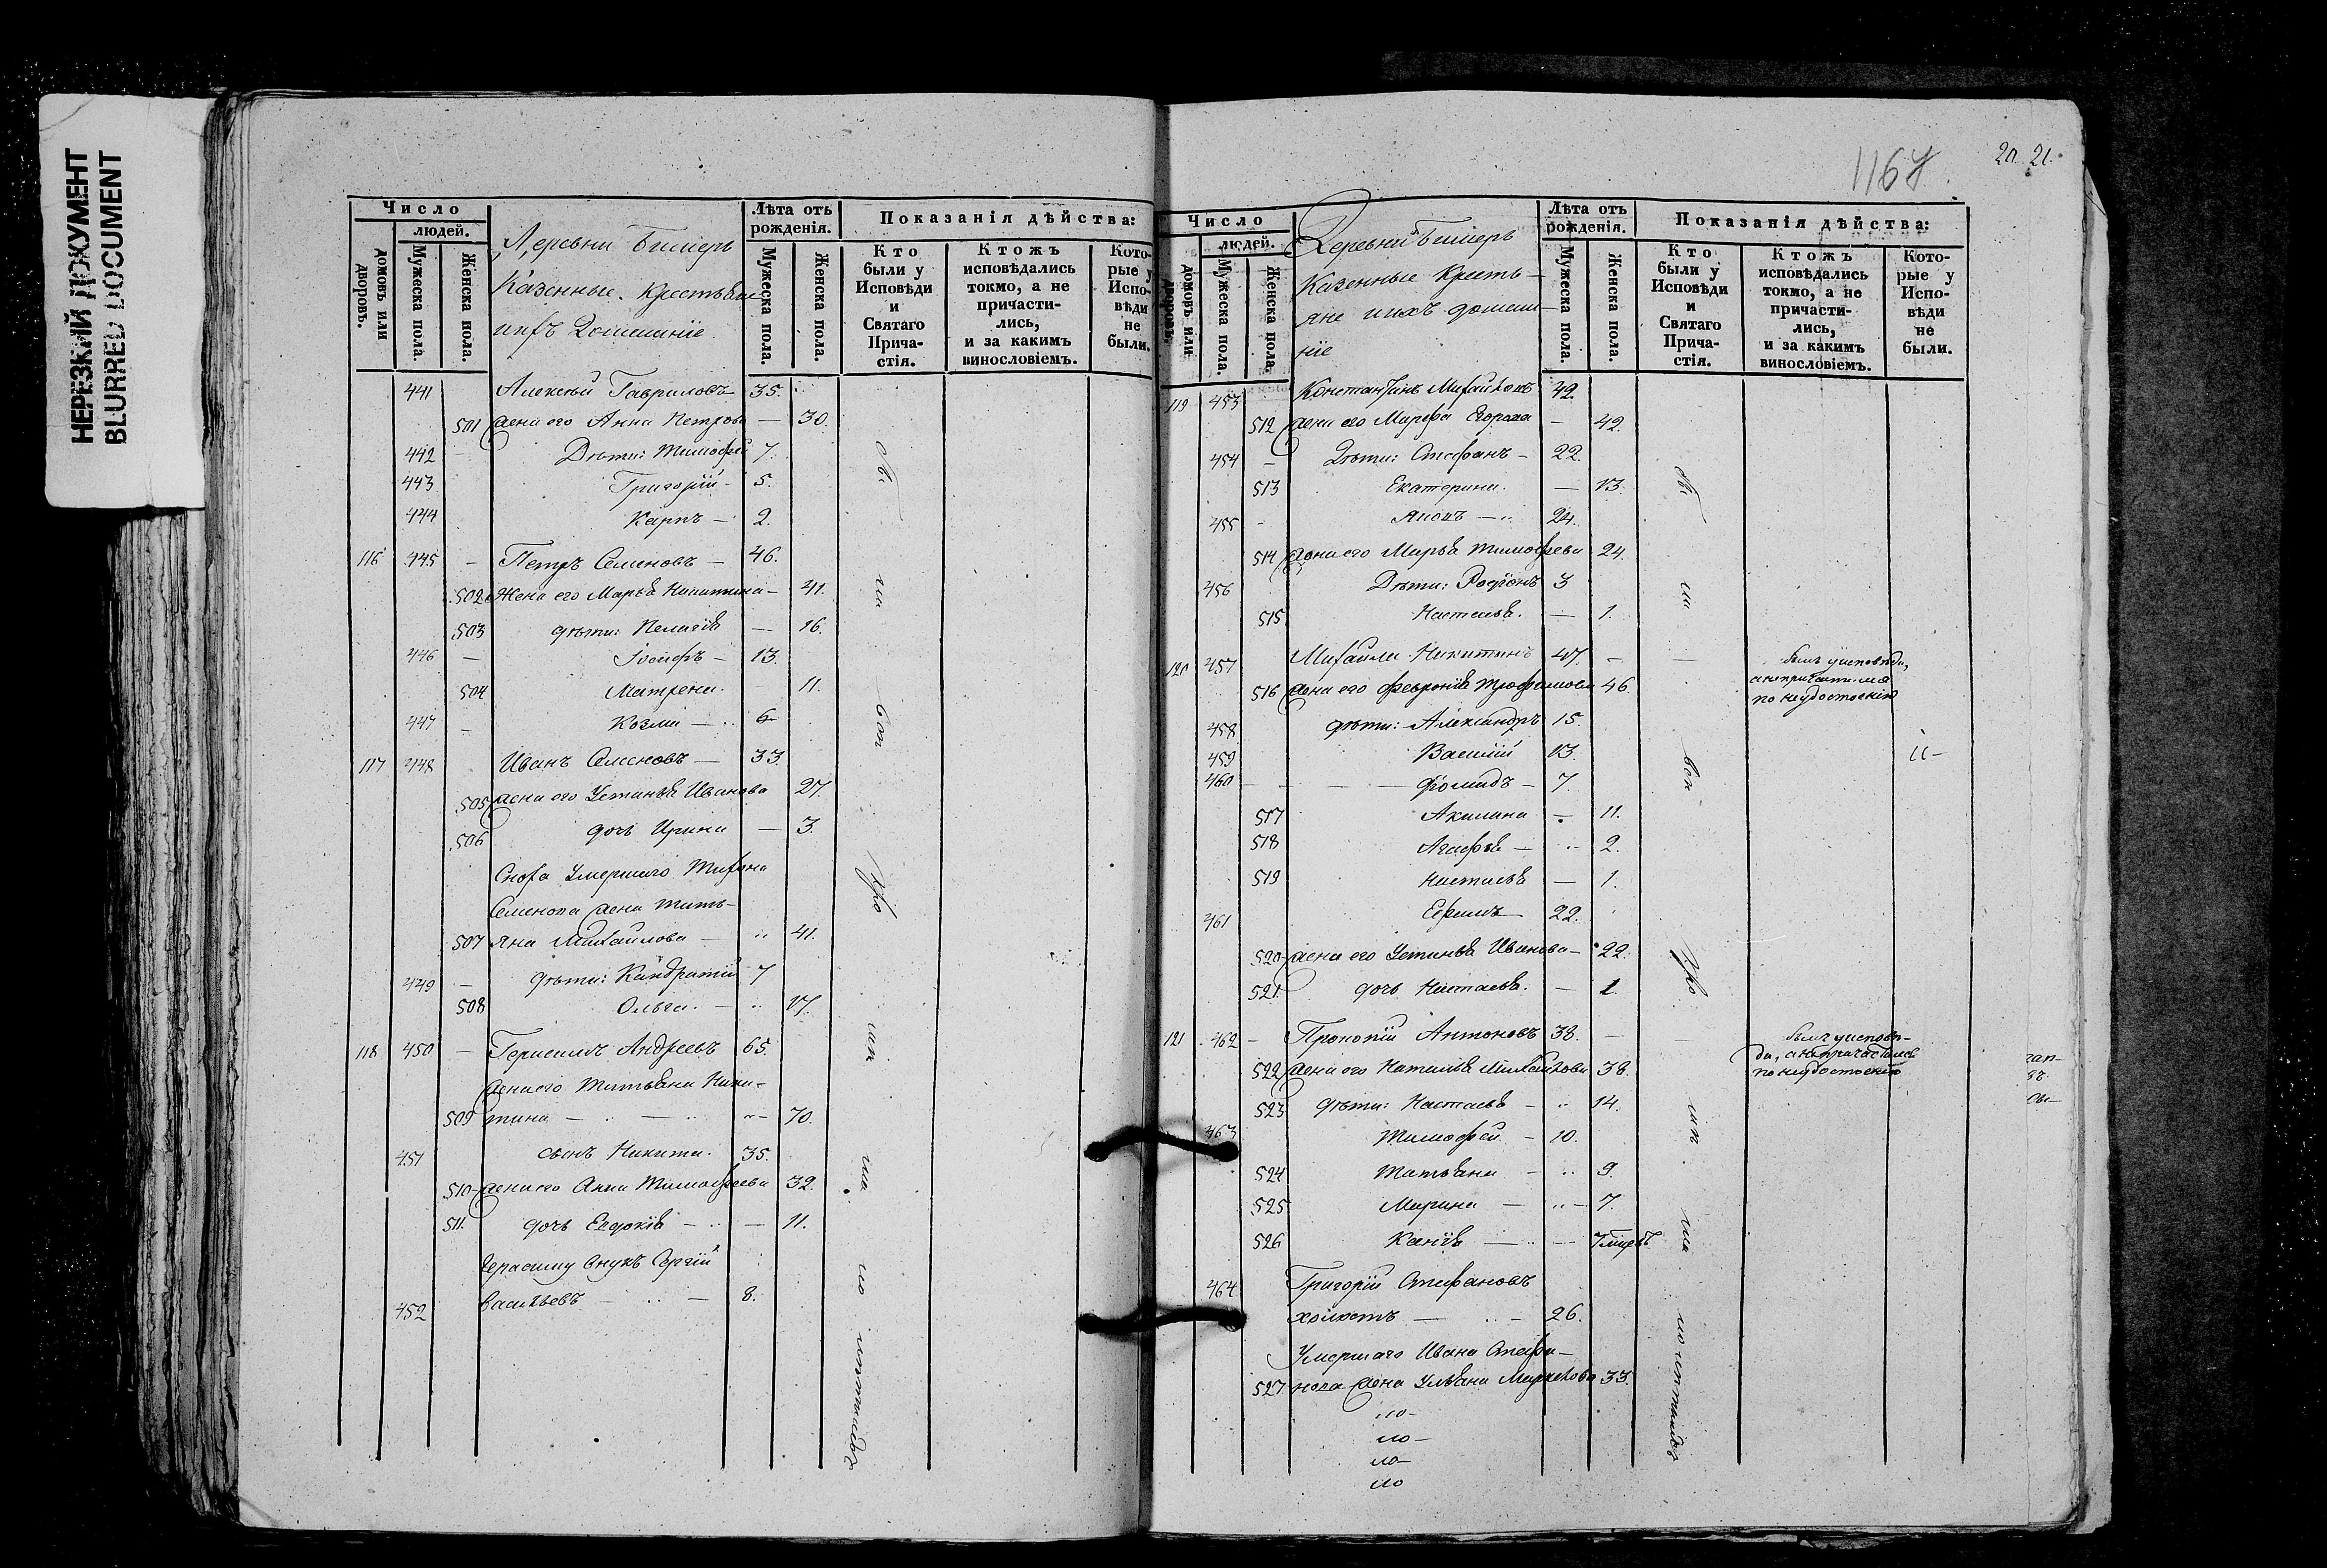 НЕРЕЗКИЙ ДОКУМЕНТ
BLURRED DOCUMENT
Число
людей.
домовъ или дворовъ.
Мужеска пола.
Женска пола.
Деревни Бимерь
Казенные Крестьяне
ихъ домашніе
Лѣта отъ рожденія.
Мужеска пола.
Женска пола.
Показанія дѣйства:
Кто были у Исповѣди и Святаго Причастія.
Ктожъ исповѣдались токмо, а не причастились, и за какимъ винословіемъ.
Которые у Исповѣди не были.
441 Алексѣй Гавриловъ 35.
501 жена его Анна Петрова — 30.
442 — Дѣти: Тимофей 7.
443 Григорій 5.
444 Карпъ — 2.
116 445 — Петръ Семеновъ — 46.
502 Жена его Марья Никитина — 41.
503 дѣти: Пелагія — 16.
446 — Іосифъ — 13.
504 Матрена. 11.
447 — Козма — 6
117 448 Иванъ Семеновъ — 33.
505 жена его Устинья Иванова 27.
506 дочь Ирина — 3.
Сноха Умершаго Тихона
Семенова жена Тать-
507 яна Михайлова — 41.
449 — дѣти: Кандратій 7
508 Ольга. — 17.
118 450 — Герасимъ Андреевъ 65.
жена его Татьяна Ники-
509 тина — — 70.
451 сынъ Никита. 35.
510 жена его Анна Тимофеева 32.
511. дочь Евдокія — — 11.
Герасиму внукъ Сергій
452 Васильевъ — — 8.
1167
20. 21.
Число
людей.
домовъ или дворовъ.
Мужеска пола.
Женска пола.
Деревни Бимерь
Казенные Кресть-
яне ихъ домаш-
ніе
Лѣта отъ рожденія.
Мужеска пола.
Женска пола.
Показанія дѣйства:
Кто были у Исповѣди и Святаго Причастія.
Ктожъ исповѣдались токмо, а не причастились, и за какимъ винословіемъ.
Которые у Исповѣди не были.
119 453 Константинъ Михайловъ 42.
512 жена его Марфа Егорова — 42.
454 — Дѣти: Стефанъ — 22.
513 Екатерина. — 13.
455 — 24.
514 Жена его Марья Тимофеева 24.
456 Дѣти: Родіонъ 3
515 Настасья. — 1.
120 457 Михайла Никитинъ 47. — —
былъ у исповѣди,
а не причастился
по неудостоенію
516 жена его Февронія Трофимова 46
458 дѣти: Александръ 15.
459 Василій 13.
460 — — — 7.
517 Акилина — 11.
518 Агафья — 2.
519 Настасья — 1.
461 Ефимъ — 22.
520 жена его Устинья Иванова — 22.
521 дочь Настасья. — 1.
121 462 — Прокопій Антоновъ 38. — —
былъ у исповѣ-
ди, а не причастился
по неудостоенію
522 жена его Наталья Михайлова 38.
523 дѣти: Настасья — 14.
463 Тимофей. — 10.
524 Татьяна — 9.
525 Марина — — 7.
526 — —
464 Григорій Стефановъ
холостъ — — 26.
Умершаго Ивана Стефа-
527 нова жена Ульяна Маркелова 33.